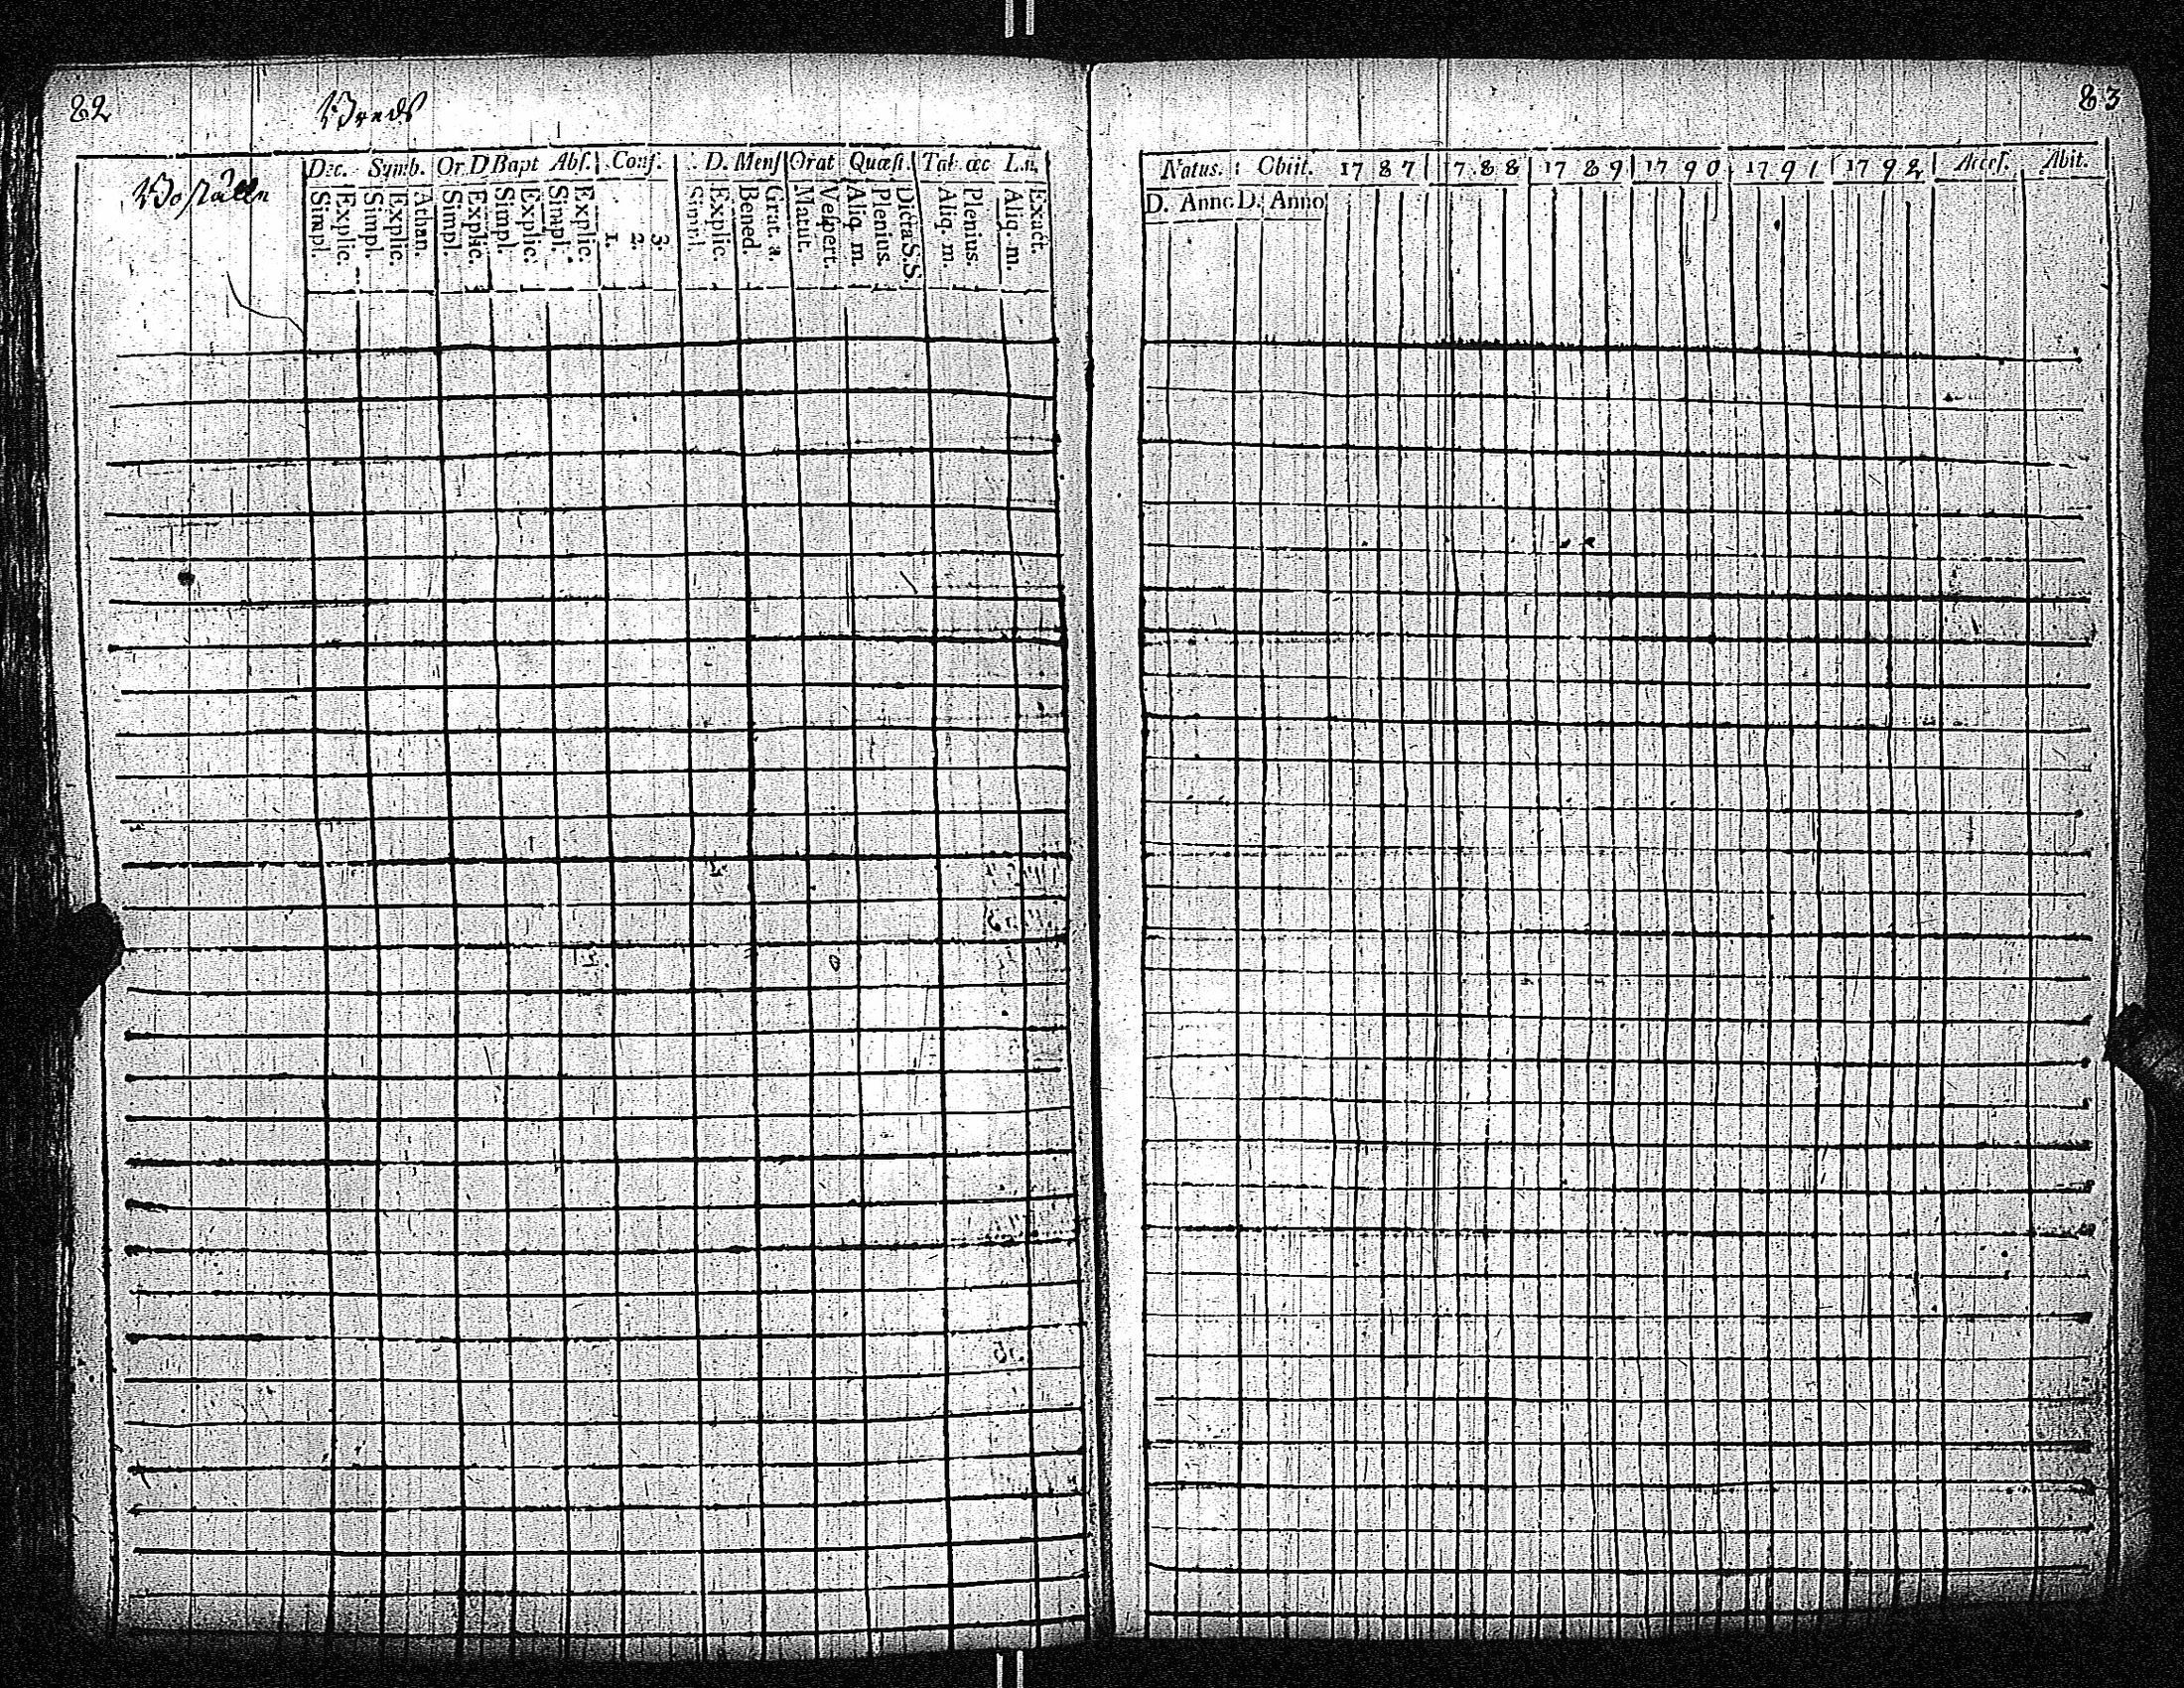 82
Breds
Boställe
Dec. Symb. Or. D Bapt Abs. Conf. D. Mens Orat Quæsti. Tab. œc L.n.
Simpl. Explic. Simpl. Explic. Athan. Simpl. Explic. Simpl. Explic. Simpl. Explic. 1. 2. 3. Simpl. Explic. Bened. Grat. a. Matut. Vespert. Aliq. m. Plenius. Dicta S.S. Aliq. m. Plenius. Aliq. m. Exact.
83
Natus. Obiit. 1787 1788 1789 1790 1791 1792 Access. Abit.
D. Anno D. Anno